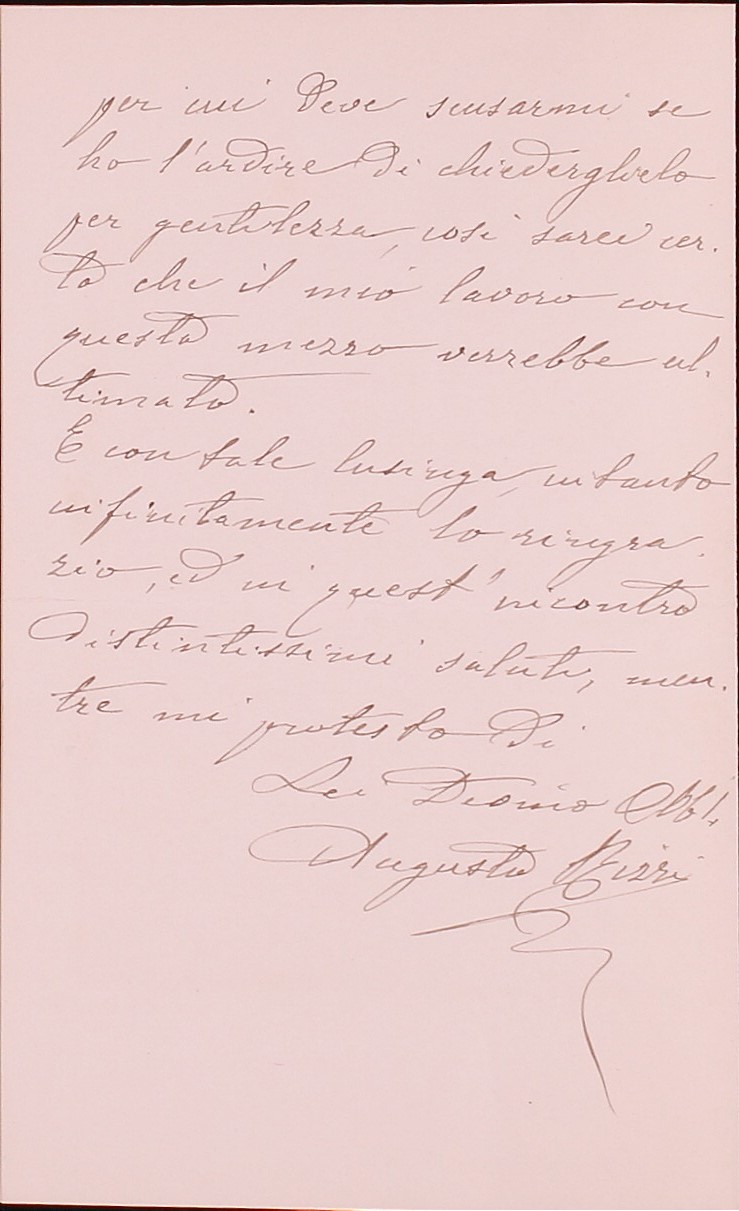 per cui deve scusarmi se
ho l'ardire di chiederglielo
per gentilezza, così sarei cer-
to che il mio lavoro con
questo mezzo verrebbe ul-
timato.
E con tale lusinga, intanto
infinitamente lo ringra-
zio, ed in quest'incontro
distintissimi saluti, men-
tre mi protesto di
Lei Devmo Obbl.
Augusto Rizzi